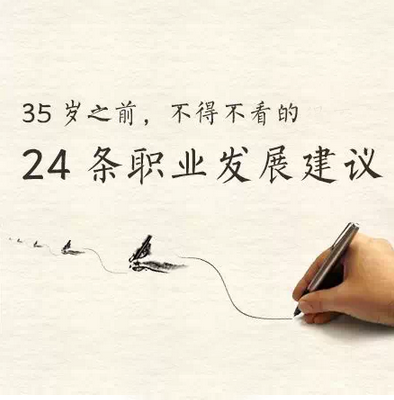 35 岁之前，不得不看的
24 条职业发展建议